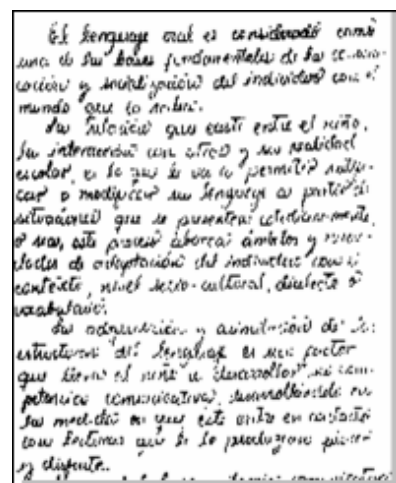 El lenguaje oral es considerado como
una de las bases fundamentales de la comuni-
cación y socialización del individuo con el
mundo que lo rodea.
La relación que existe entre el niño,
la interacción con otros y su realidad
escolar, es lo que le va a permitir
o modificar su lenguaje a partir de
situaciones que se presentan cotidianamente,
o sea, este proceso abarca ámbitos y
de adaptación del individuo con
contexto, nivel socio-cultural, dialecto o
vocabulario.
La adquisición y asimilación de las
estructuras del lenguaje es un factor
que lleva al niño a desarrollar su com-
petencia comunicativa, en
la medida en que este entre en contacto
con lecturas que le produzcan placer
y disfrute.